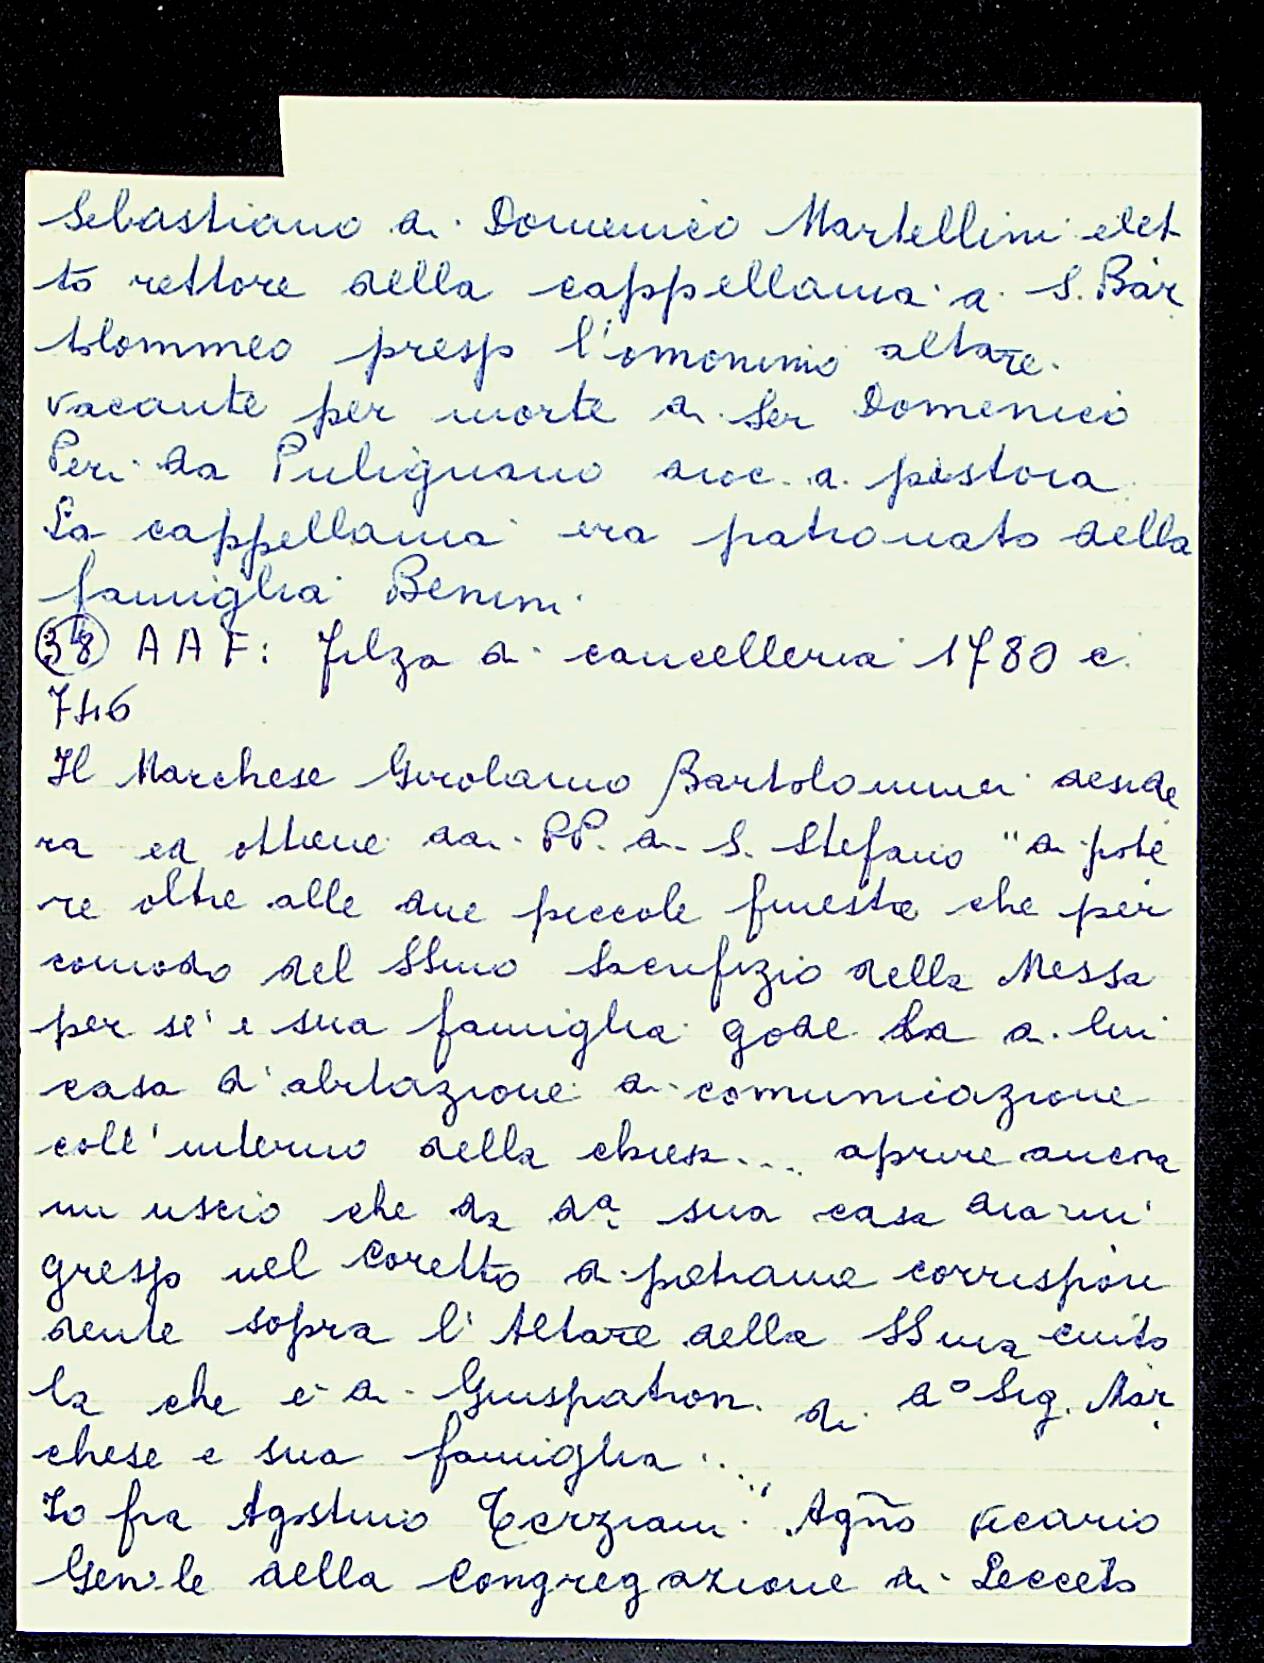 Sebastiano di Domenico Martellini elet
to rettore della cappellania di S. Bar
tolommeo presso l'omonimo altare.
vacante per morte di Ser Domenico
Peri da Pulignano dioc. di pistoia
La cappellania era patronato della
famiglia Benini
38 AAF: Filza di cancelleria 1780 c.
746
Il Marchese Girolamo Bartolommei deside
ra ed ottiene dai PP. di S. Stefano "di pote
re oltre alle due piccole finestre che per
comodo del SSmo Sacrifizio della Messa
per sé e sua famiglia gode la di lui
casa d'abitazione di comuniazione
coll'interno della chiesa.... aprire ancora
un uscio che da da sua casa dia in
gresso nel Coretto di petrame corrispon
dente sopra l'Altare della SSma cinto
la che è di Giuspatron. di do Sig. Mar
chese e sua famiglia....."
Io fra Agostino Terziani Agño Vicario
Gen.le della Congregazione di Lecceto